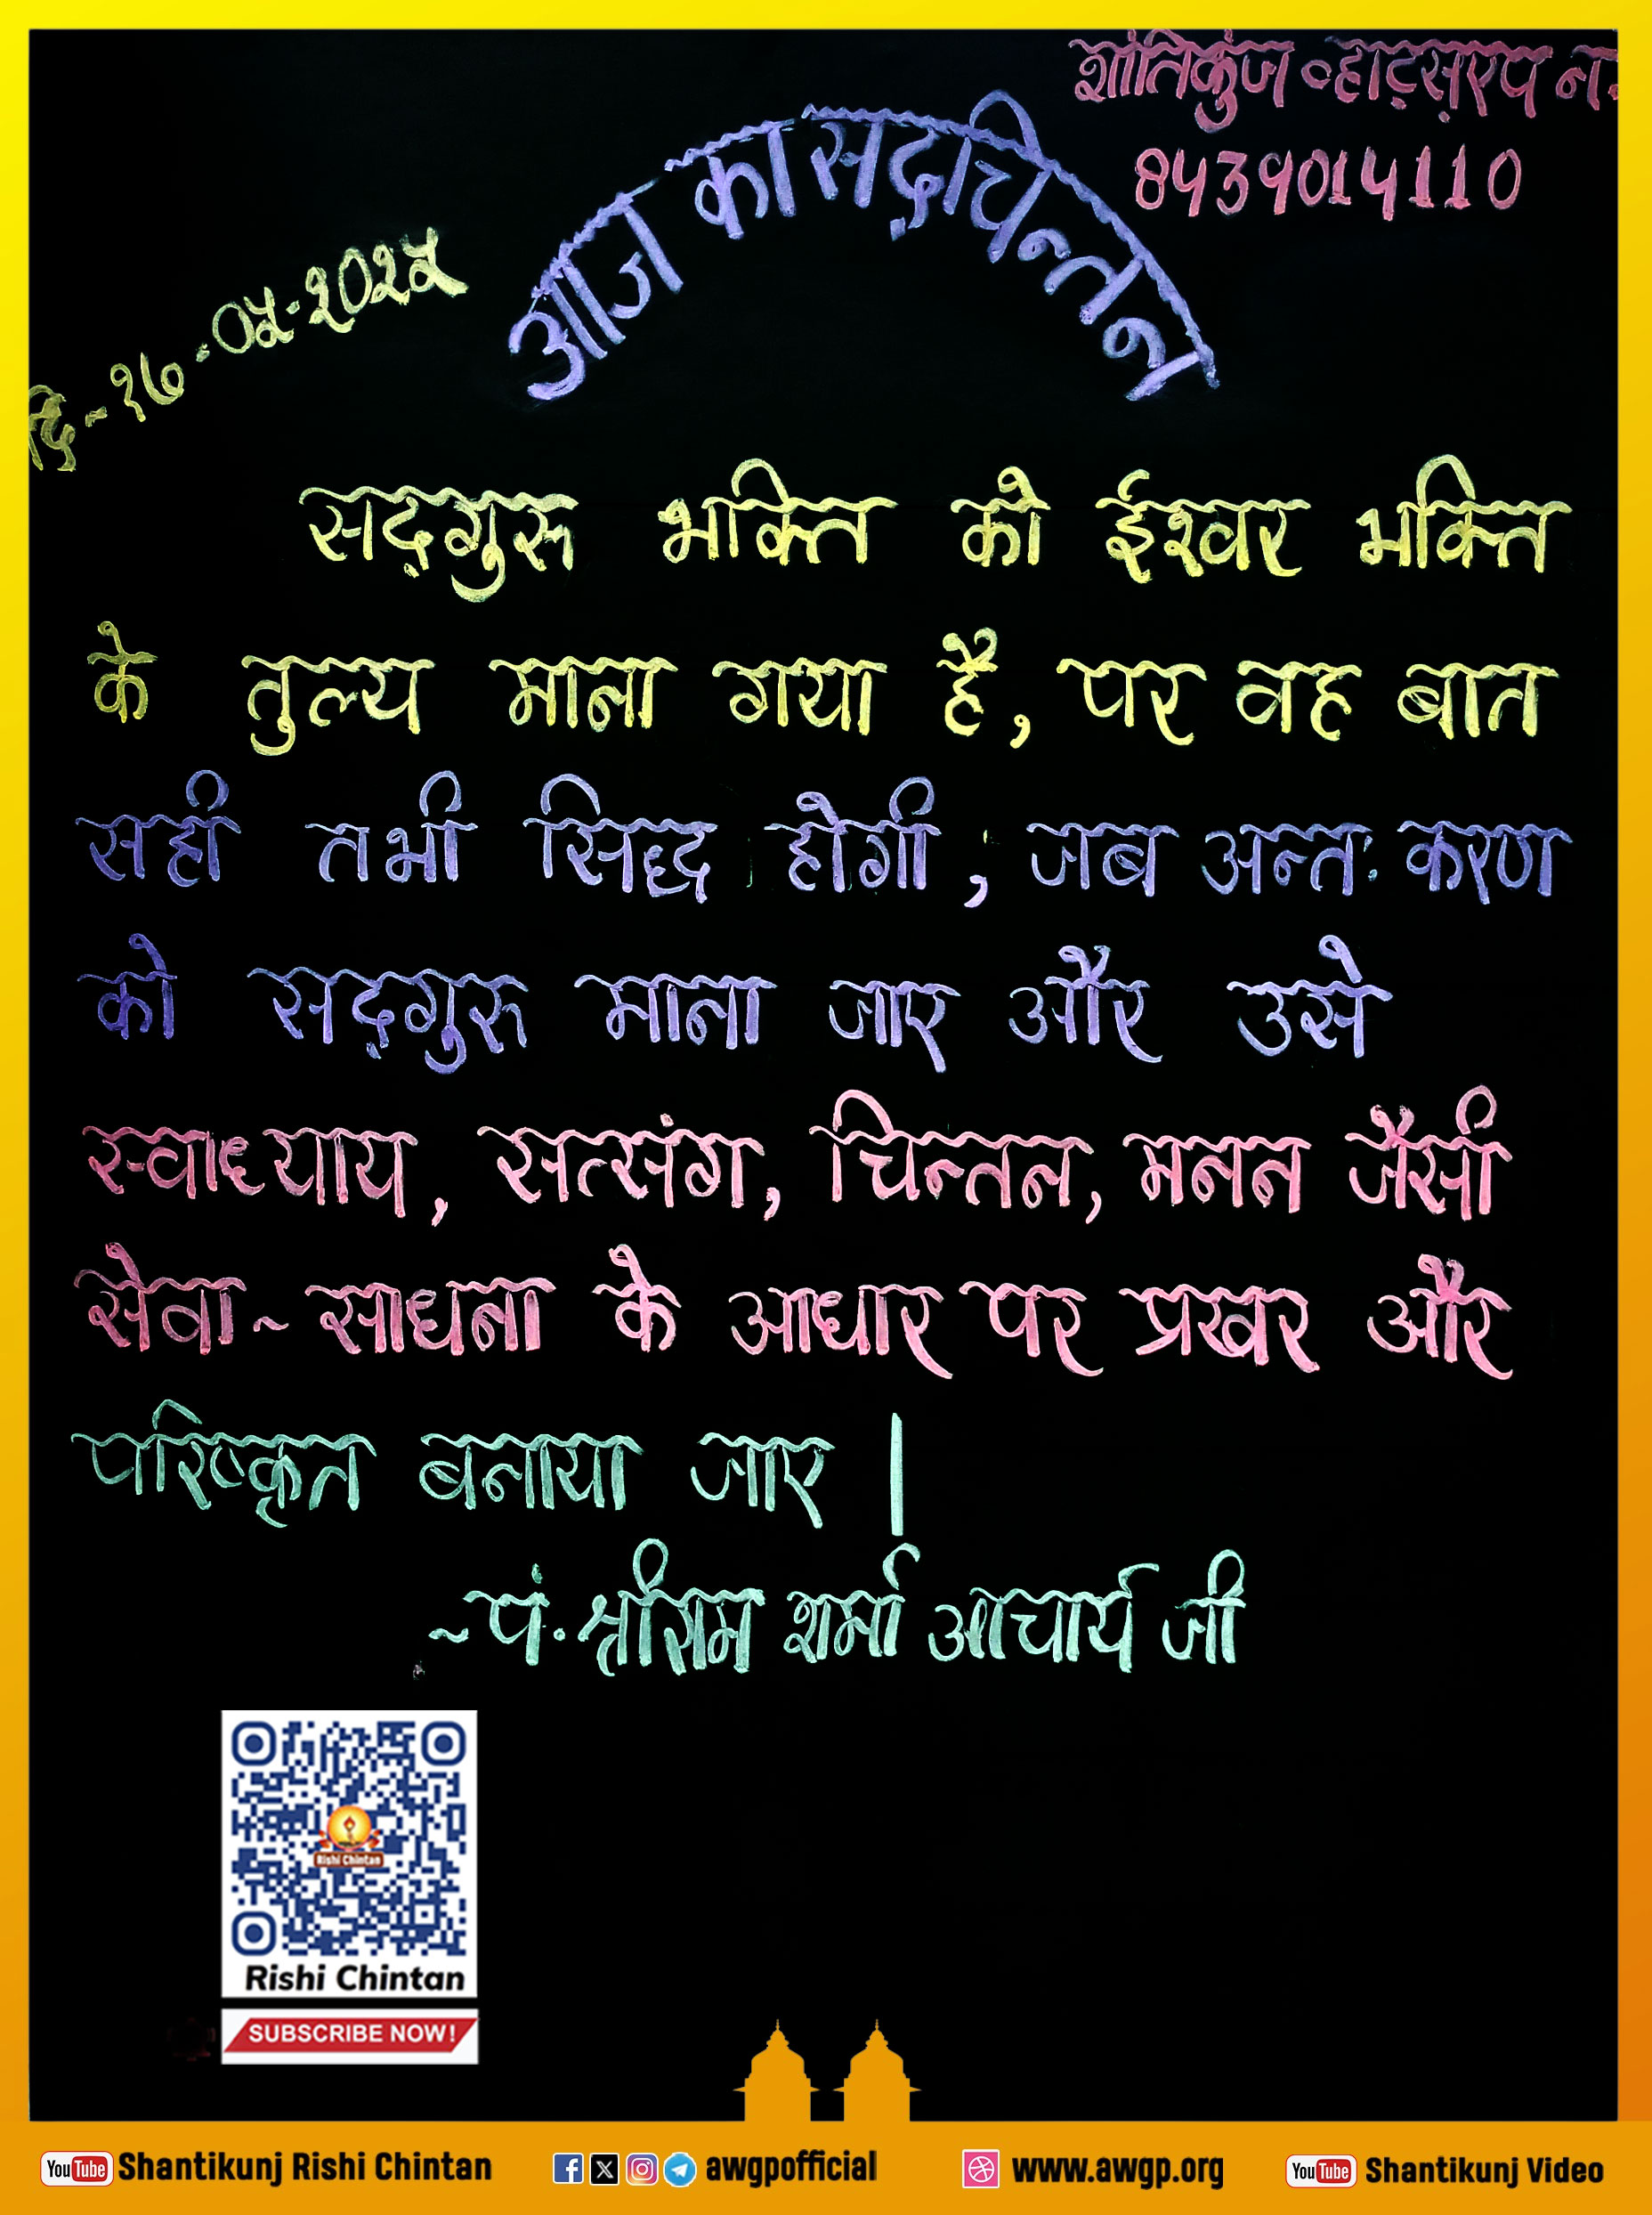 शांतिकुंज व्हाट्सएप न.
8439014110
आज का सद्चिन्तन
दि-१७-०५-२०२५
सद्गुरु भक्ति को ईश्वर भक्ति
के तुल्य माना गया है, पर वह बात
सही तभी सिद्ध होगी, जब अन्तः करण
को सद्गुरु माना जाए और उसे
स्वाध्याय, सत्संग, चिन्तन, मनन जैसी
सेवा-साधना के आधार पर प्रखर और
परिष्कृत बनाया जाए।
~पं. श्रीराम शर्मा आचार्य जी
Rishi Chintan
Rishi Chintan
SUBSCRIBE NOW!
YouTube Shantikunj Rishi Chintan awgpofficial www.awgp.org YouTube Shantikunj Video